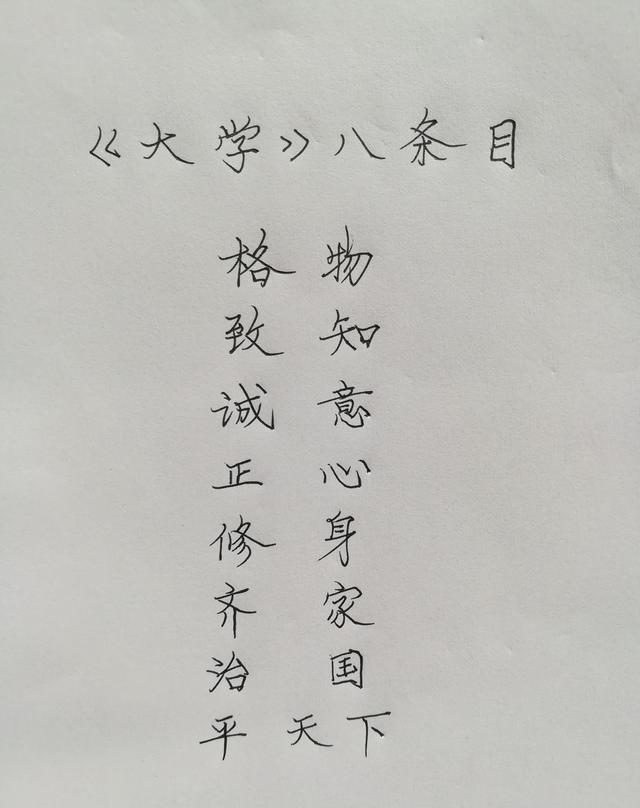 《大学》八条目
格物
致知
诚意
正心
修身
齐家
治国
平天下